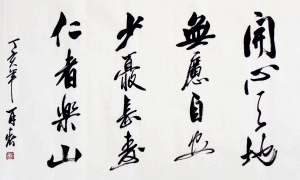 開心天地
無慮自安
少憂長壽
仁者樂山
丁亥年